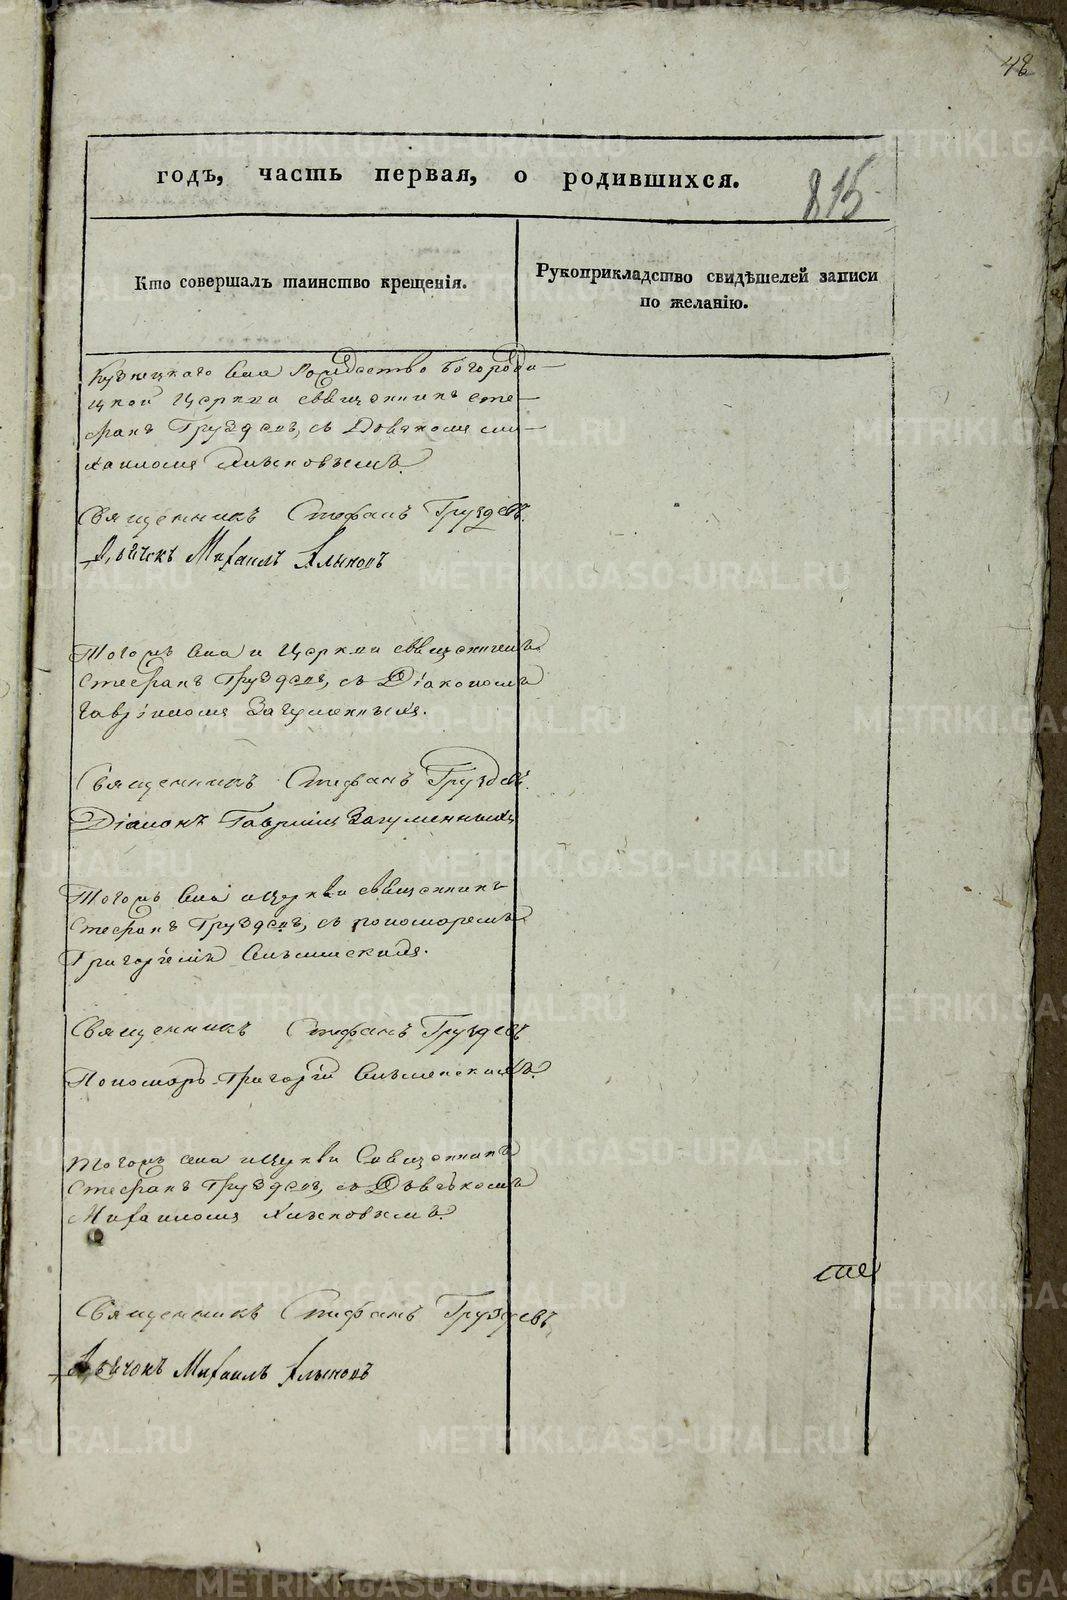 48
годъ, часть первая, о родившихся.
815
Кто совершалъ таинство крещенія.
Рукоприкладство свидѣтелей записи
по желанію.
Кузнецкаго села Рождество Богороди-
цкой Церкви священникъ Сте-
фанъ Груздевъ, съ Дьячкомъ Ми-
хаиломъ
Священникъ Стефанъ Груздевъ.
Дьячекъ Михаилъ
Тогожъ села и Церкви священникъ
Стефанъ Груздевъ, съ Діакономъ
Гавріиломъ Загуменныхъ.
Священникъ Стефанъ Груздевъ.
Діаконъ Гавріилъ Загуменныхъ
Тогожъ села и Церкви священникъ
Стефанъ Груздевъ, съ пономаремъ
Григоріемъ
Священникъ Стефанъ Груздевъ
Пономарь Григорій
Тогожъ села и Церкви Священникъ
Стефанъ Груздевъ, съ Дьячкомъ
Михаиломъ
Священникъ Стефанъ Груздевъ,
Дьячокъ Михаилъ
METRIKI.GASO-URAL.RU